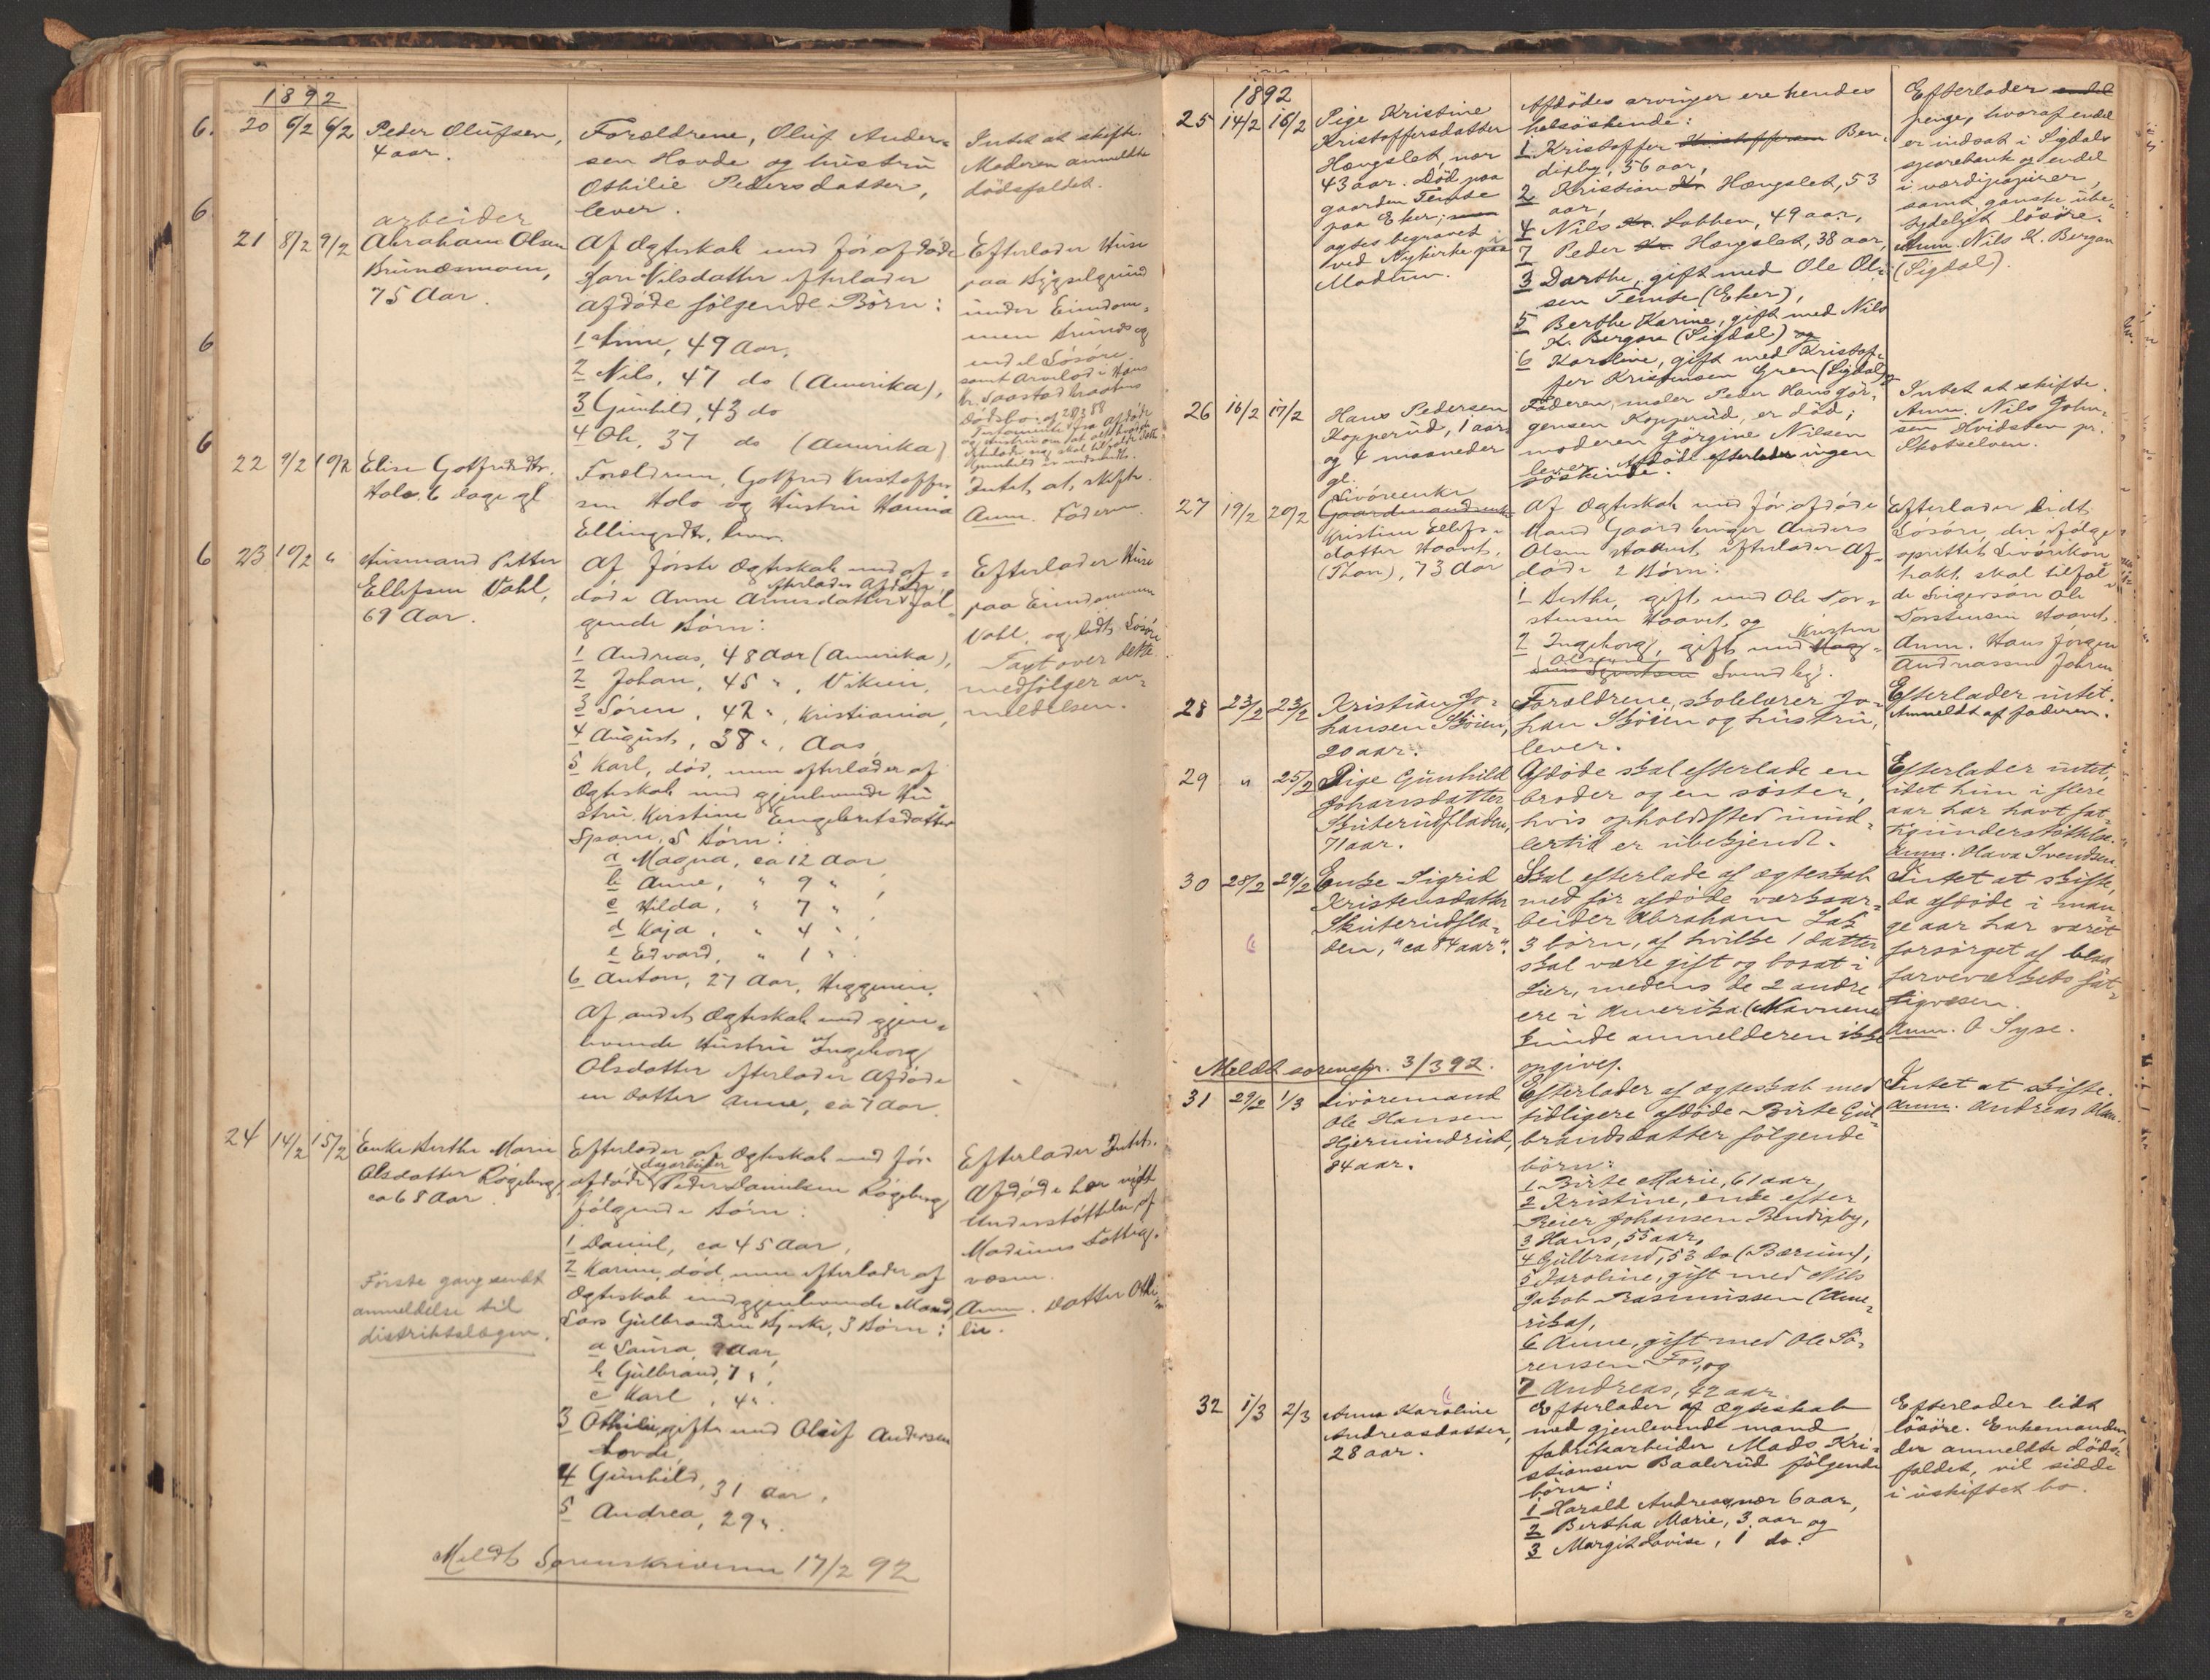 1892
6. 20 6/2 6/2 Peder Olufsen,
4 aar.
Forældrene, Oluf Ander=
sen Hovde og hustru
Othilie Pedersdatter,
lever.
Intet at skifte.
Moderen anmeldte
dödsfaldet.
6
arbeider
21 8/2 9/2 Abraham Olsen
Brundsmoen,
75 Aar.
Af Ægteskab med før afdöde
Kari Nilsdatter efterlader
Afdöde følgende Børn:
1 Anne, 49 Aar,
2 Nils, 47 do (Amerika),
3 Gunhild, 43 do
4 Ole, 37 do (Amerika)
Efterlader Huse
paa Bygselgrund
under Eiendom=
men Brunds og
endel Løsøre
samt Arvelod i Hans
6
6
22 9/2 10/2 Elise Gotfredsdtr.
Holo. 6 dage gl
Forældrene, Gotfred Kristoffer
sen Holo og Hustru Hanna
Ellingsdtr., lever.
Intet at skifte.
Anm. Faderen.
6 23 10/2 " Husmand Petter
Ellefsen Vahl,
69 Aar.
Af første Ægteskab med af=
efterlader Afdöde
döde Anne Arnesdatter føl=
gende Børn:
1 Andreas, 48 Aar (Amerika),
2 Johan, 45 ", Viken,
3 Søren, 42 ", Kristiania,
4 August, 38 ", Aas,
5 Karl, død, men efterlader af
Ægteskab med gjenlevende Hu
stru Kirstine Engebretsdatter
Spone, 5 Børn:
a Magna, ca 12 Aar,
b Anne, " 9 ",
c Hilda, " 7 ",
d Kaja, " 4 ",
e Edvard, " 1 ".
6 Anton, 27 Aar, Heggenen.
Af andet Ægteskab med gjen=
levende Hustru Ingeborg
Olsdatter efterlader Afdöde
en Datter Anne, ca 7 Aar.
Efterlader Huse
paa Eiendommen
Vahl, og lidt Løsøre
Taxt over dette
medfølger an=
meldelsen.
24 14/2 15/2 Enke Berthe Marie
Olsdatter Røgeberg,
ca 68 Aar.
Efterlader af Ægteskab med før
dagarbeider
afdöde Peder Danielsen Røgeberg
følgende Børn:
1 Daniel, ca 45 Aar,
2 Karine, død, men efterlader af
Ægteskab med gjenlevende Mand,
Lars Gulbrandsen Bjerke, 3 Børn:
a Laura, 9 Aar,
b Gulbrand, 7 ",
c Karl, 4 ".
3 Othilie, gift med Oluf Andersen
Hovde,
4 Gunhild, 31 Aar,
5 Andrea, 29 ".
Efterlader Intet.
Afdöde har nydt
Understøttelse af
Modums Fattig=
væsen.
Anm. Datter Othi=
lie.
Første gang sendt
anmeldelse til
distriktslægen.
Meldt Sorenskriveren 17/2 92
1892
25 14/2 16/2 Pige Kristine
Kristoffersdatter
Hængslet, nær
43 aar. Död paa
gaarden Temte
paa Eker;
agtes begravet
ved Nykirke paa
Modum.
Afdödes arvinger ere hendes
helsöskende:
1 Kristoffer Kristoffersen Ben=
dixby, 56 aar,
2 Kristian Kr. Hængslet, 53
aar,
4 Nils Kr. Labben, 49 aar,
7 Peder Kr. Hængslet, 38 aar,
3 Dorthe, gift med Ole Ol=
sen Temte (Eker),
5 Berthe Karine, gift med Nils
K. Bergan (Sigdal) og
6 Karoline, gift med Kristof=
fer Kristensen Gren (Sigdal).
Efterlader endel
penge, hvoraf endel
er indsat i Sigdals
sparebank og endel
i værdipapirer,
samt ganske ube=
tydeligt lösöre.
Anm. Nils K. Bergan
(Sigdal).
26 16/2 17/2 Hans Pedersen
Kopperud, 1 aar
og 4 maaneder
gl.
Faderen, maler Peder Hans Jör=
gensen Kopperud, er död;
moderen Jörgine Nilsen
lever. Afdöde efterlader ingen
söskende.
Intet at skifte.
Anm. Nils John=
sen Hvidsten pr.
Skotselven.
27 19/2 20/2
Livöreenke
Gaardmandsenke
Kristine Ellefs=
datter Haavet,
(Thon), 73 Aar
Af Ægteskab med før afdöde
Mand Gaardbruger Anders
Olsen Haavet efterlader Af=
döde 2 Børn:
1 Berthe, gift med Ole Tor=
stensen Haavet, og
2 Ingeborg, gift med
Kristen
Olsen
Svendby.
Efterlader lidt
Løsøre, der ifølge
oprettet Livörekon
trakt, skal tilfal=
de Svigersøn Ole
Torstensen Haavet.
Anm. Hans Jørgen
Andreassen Johren
28 23/2 23/2 Kristian Jo=
hansen Sköien,
20 aar.
Forældrene, skolelærer Jo=
han Skoien og hustru,
lever.
Efterlader intet.
Anmeldt af faderen.
29 " 25/2 Pige Gunhild
Johansdatter
Skuterudfladen,
71 aar.
Afdöde skal efterlade en
broder og en söster,
hvis opholdsted imid=
lertid er ubekjendt.
Efterlader intet,
idet hun i flere
aar har havt fat=
tigunderstöttelse.
Anm. Olava Svendsen.
30 28/2 29/2 Enke Sigrid
Kristensdatter
Skuterudfla=
den, "ca 84 aar".
6
Skal efterlade af ægteskab
med för afdöde værksar=
beider Abraham Lak
3 börn, af hvilke 1 datter
skal være gift og bosat i
Lier, medens de 2 andre
ere i Amerika. (Navnene
kunde anmelderen ikke
opgive).
Intet at skifte,
da afdöde i man=
ge aar har været
forsörget af blaa
farveværkets fat=
tigvæsen.
Anm. O Syse.
Meldt sorenskr. 3/3 92.
31 29/2 1/3 Livöremand
Ole Hansen
Hjermundrud,
84 aar.
Efterlader af ægteskab med
tidligere afdöde Birte Gul=
brandsdatter følgende
börn:
1 Birte Marie, 61 aar,
2 Kristine, enke efter
Reier Johansen Bendixby,
3 Hans, 55 aar,
4 Gulbrand, 53 do (Bærum),
5 Karoline, gift med Nils
Jakob Rasmussen (Ame=
rika),
6 Anne, gift med Ole Sö=
rensen Fos, og
7 Andreas, 42 aar.
Intet at skifte.
Anm. Andreas Olsen.
32 1/3 2/3
6
Anna Karoline
Andreasdatter,
28 aar.
Efterlader af ægteskab
med gjenlevende mand
fabrikarbeider Mads Kri=
stiansen Baalerud følgende
börn:
1 Harald Andreas, nær 6 aar,
2 Bertha Marie, 3 aar og
3 Margit Lovise, 1 do.
Efterlader lidt
lösöre. Enkemanden,
der anmeldte döds=
faldet, vil sidde
i uskiftet bo.